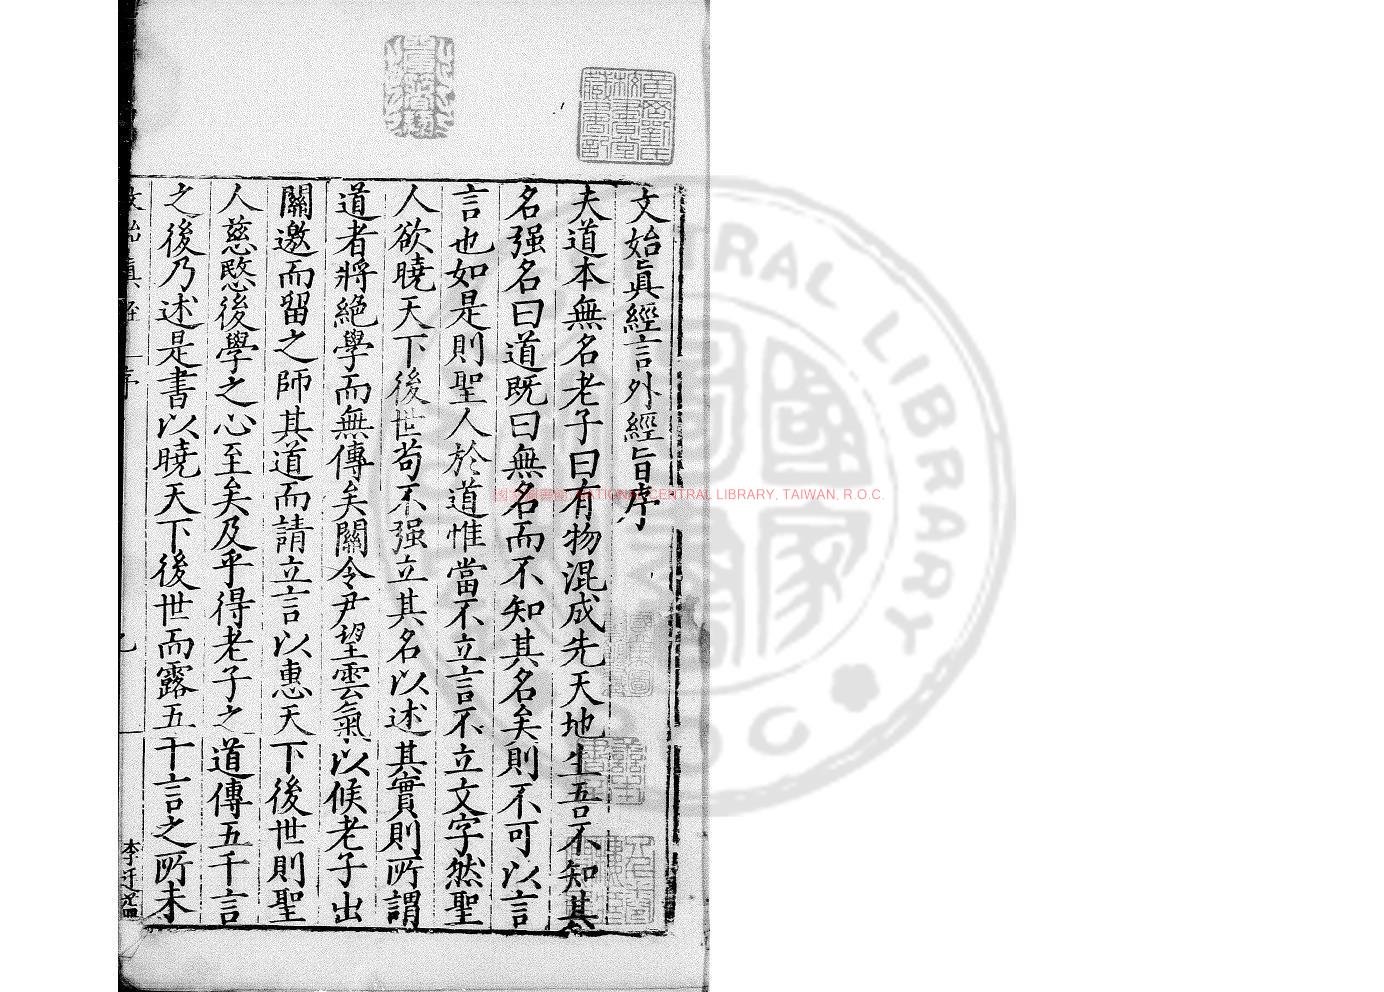 文始眞經言外經旨序
夫道本無名老子曰有物混成先天地生吾不知其
名强名曰道既曰無名而不知其名矣則不可以言
言也如是則聖人於道惟當不立言不立文字然聖
人欲曉天下後世苟不强立其名以述其實則所謂
道者將絶學而無傳矣關令尹望雲氣以候老子出
關邀而留之師其道而請立言以惠天下後世則聖
人慈愍後學之心至矣及乎得老子之道傳五千言
之後乃述是書以曉天下後世而露五千言之所未
NATIONAL CENTRAL LIBRARY, TAIWAN, R.O.C.
黃岡劉氏
校書堂
藏書記
CENTRAL LIBRARY
R.O.C.
國家圖書館